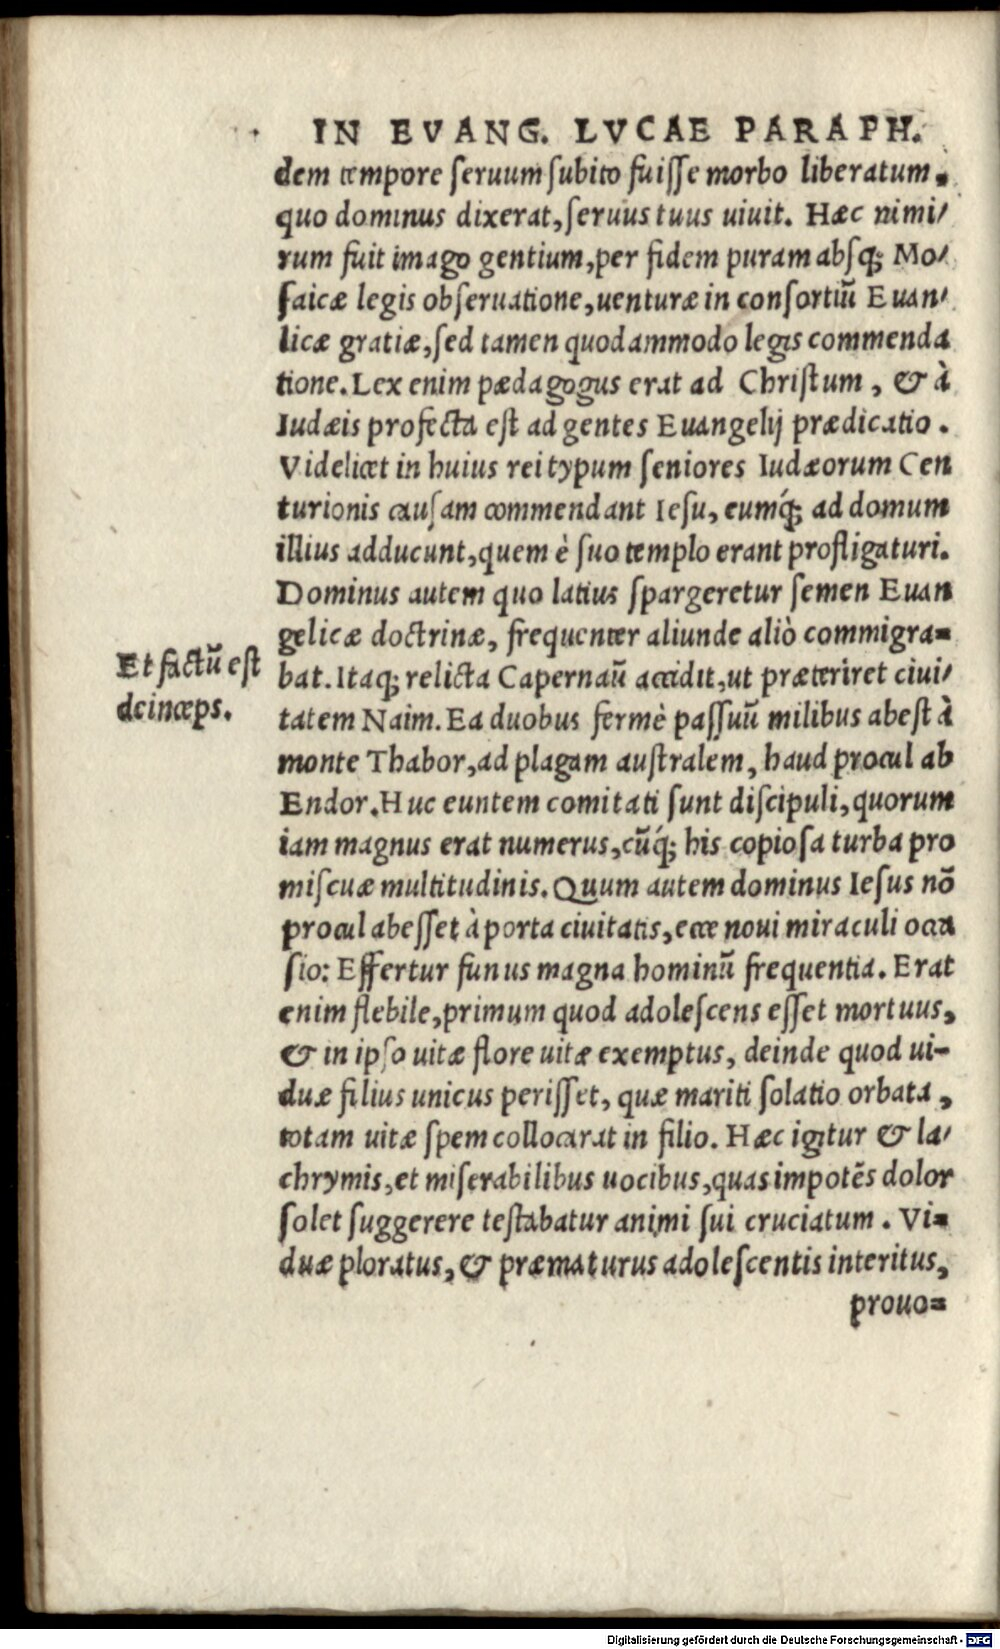 IN EVANG. LVCAE PARAPH.
dem tempore ſeruum ſubito fuiſſe morbo liberatum,
quo dominus dixerat, ſeruus tuus uiuit. Hæc nimi/
rum fuit imago gentium, per fidem puram abſq; Mo/
ſaicæ legis obſeruatione, uenturæ in conſortiũ Euan/
licæ gratiæ, ſed tamen quodammodo legis commenda
tione. Lex enim pædagogus erat ad Chriſtum, & à
Iudæis profecta eſt ad gentes Euangelij prædicatio.
Videlicet in huius rei typum ſeniores Iudæorum Cen
turionis cauſam commendant Ieſu, eumq́; ad domum
illius adducunt, quem è ſuo templo erant profligaturi.
Dominus autem quo latius ſpargeretur ſemen Euan
gelicæ doctrinæ, frequenter aliunde aliò commigra=
Et factũ eſt
deinceps.
bat. Itaq; relicta Capernaũ accidit, ut præteriret ciui/
tatem Naim. Ea duobus fermè paſſuũ milibus abeſt à
monte Thabor, ad plagam auſtralem, haud procul ab
Endor. Huc euntem comitati ſunt diſcipuli, quorum
iam magnus erat numerus, cũq́; his copioſa turba pro
miſcuæ multitudinis. Quum autem dominus Ieſus nõ
procul abeſſet à porta ciuitatis, ecce noui miraculi occa
ſio: Effertur funus magna hominũ frequentia. Erat
enim flebile, primum quod adoleſcens eſſet mortuus,
& in ipſo uitæ flore uitæ exemptus, deinde quod ui-
duæ filius unicus periſſet, quæ mariti ſolatio orbata,
totam uitæ ſpem collocarat in filio. Hæc igitur & la/
chrymis, et miſerabilibus uocibus, quas impotẽs dolor
ſolet ſuggerere teſtabatur animi ſui cruciatum. Vi=
duæ ploratus, & præmaturus adoleſcentis interitus,
prouo=
Digitalisierung gefördert durch die Deutsche Forschungsgemeinschaft - DFG